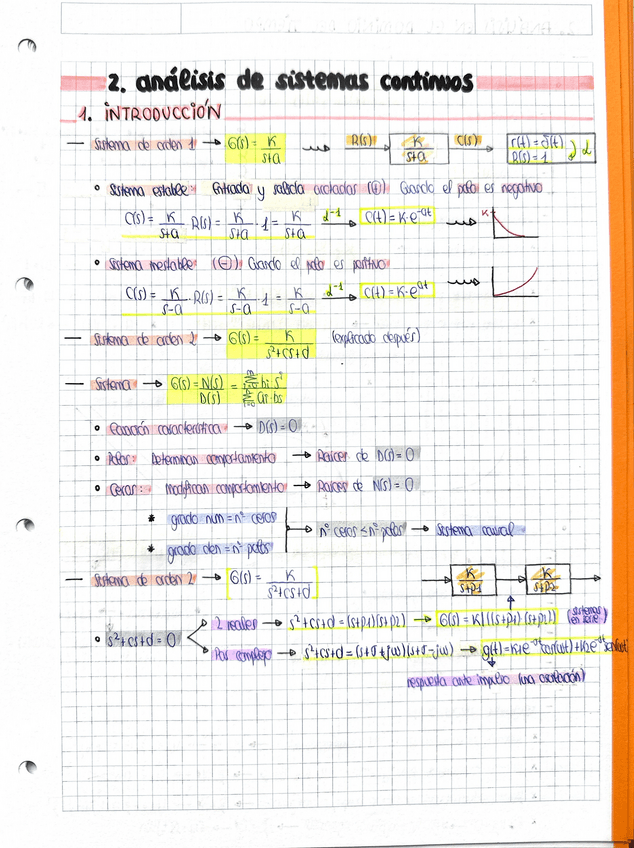 2. análisis de sistemas continuos
1. INTRODUCCIÓN
— Sistema de orden 1 → G(s) = K/(s+a) R(s) → K/(s+a) C(s) → r(t) = δ(t) R(s) = 1
• Sistema estable: Entrada y salida acotadas (+) Cuando el polo es negativo
C(s) = K/(s+a) · R(s) = K/(s+a) · 1 = K/(s+a) L⁻¹→ C(t) = K·e^-at K
• Sistema inestable (−) Cuando el polo es positivo
C(s) = K/(s-a) · R(s) = K/(s-a) · 1 = K/(s-a) L⁻¹→ C(t) = K·e^at
— Sistema de orden 2 → G(s) = K/(s²+cs+d) (explicado después)
— Sistema → G(s) = N(s)/D(s) =
• Ecuación característica → D(s) = 0
• Polos: Determinan comportamiento → Raíces de D(s) = 0
• Ceros: Modifican comportamiento → Raíces de N(s) = 0
* grado num = nº ceros
nº ceros ≤ nº polos → Sistema causal
* grado den = nº polos
— Sistema de orden 2 → G(s) = K/(s²+cs+d) → K/(s+p1) → K/(s+p2) →
2 reales → s²+cs+d = (s+p1)(s+p2) → G(s) = K/((s+p1)(s+p2)) (sistemas en serie)
• s²+cs+d = 0
Par complejo → s²+cs+d = (s+σ+jω)(s+σ-jω) → g(t) = K1e^-σt cos(ωt) + K2e^-σt sen(ωt)
respuesta ante impulso (una oscilación)